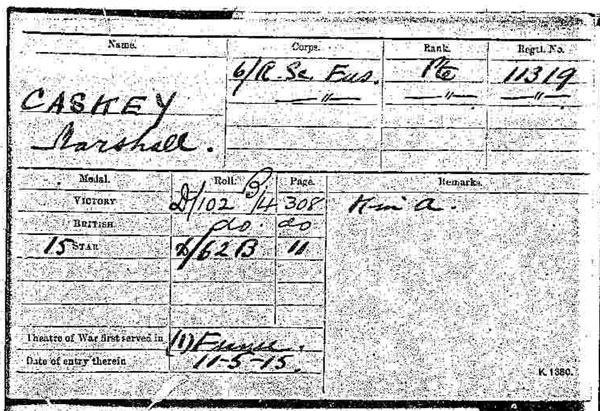 Name. Corps. Rank. Regtl. No.
CASKEY 6/R. Sc. Fus. Pte 11319
Marshall. —〃— —〃— —〃—
Medal. Roll. Page. Remarks.
VICTORY D/102 B14 308 K in A.
BRITISH do. do
15 STAR D/62B 11
Theatre of War first served in (1) France.
Date of entry therein 11-5-15.
K. 1380.